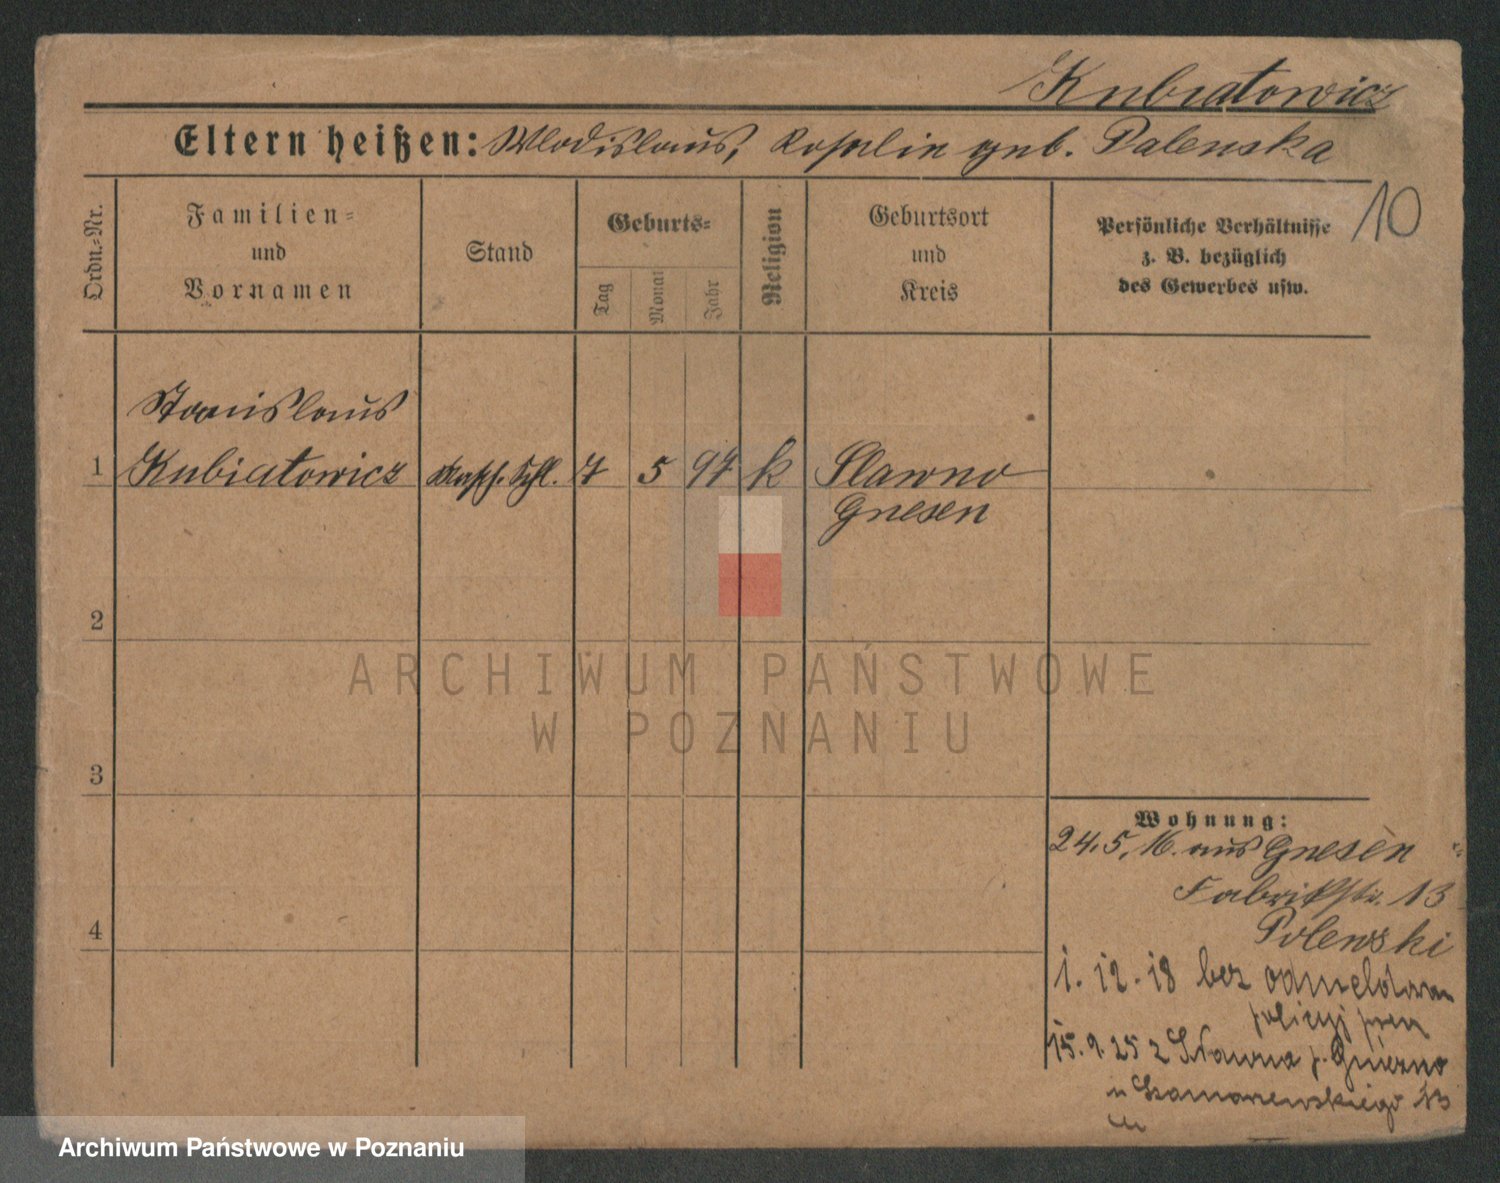 Kubiatowicz
Eltern heißen: Wladislaus, Rosalie geb. Palenska
10
Ordn.-Nr.
Familien-
und
Vornamen
Stand
Geburts-
Tag
Monat
Jahr
Religion
Geburtsort
und
Kreis
Persönliche Verhältnisse
z. B. bezüglich
des Gewerbes usw.
Stanislaus
1 Kubiatowicz Masch. Schl. 7 5 97 k Slawno
Gnesen
2
ARCHIWUM PAŃSTWOWE
W POZNANIU
3
Wohnung:
24.5.16. aus Gnesen
Fabrikstr. 13
Polenski
4
1.12.18 bez odmeldowan
policyj
15.9.25 z Sławna p. Gniezno
13
Archiwum Państwowe w Poznaniu